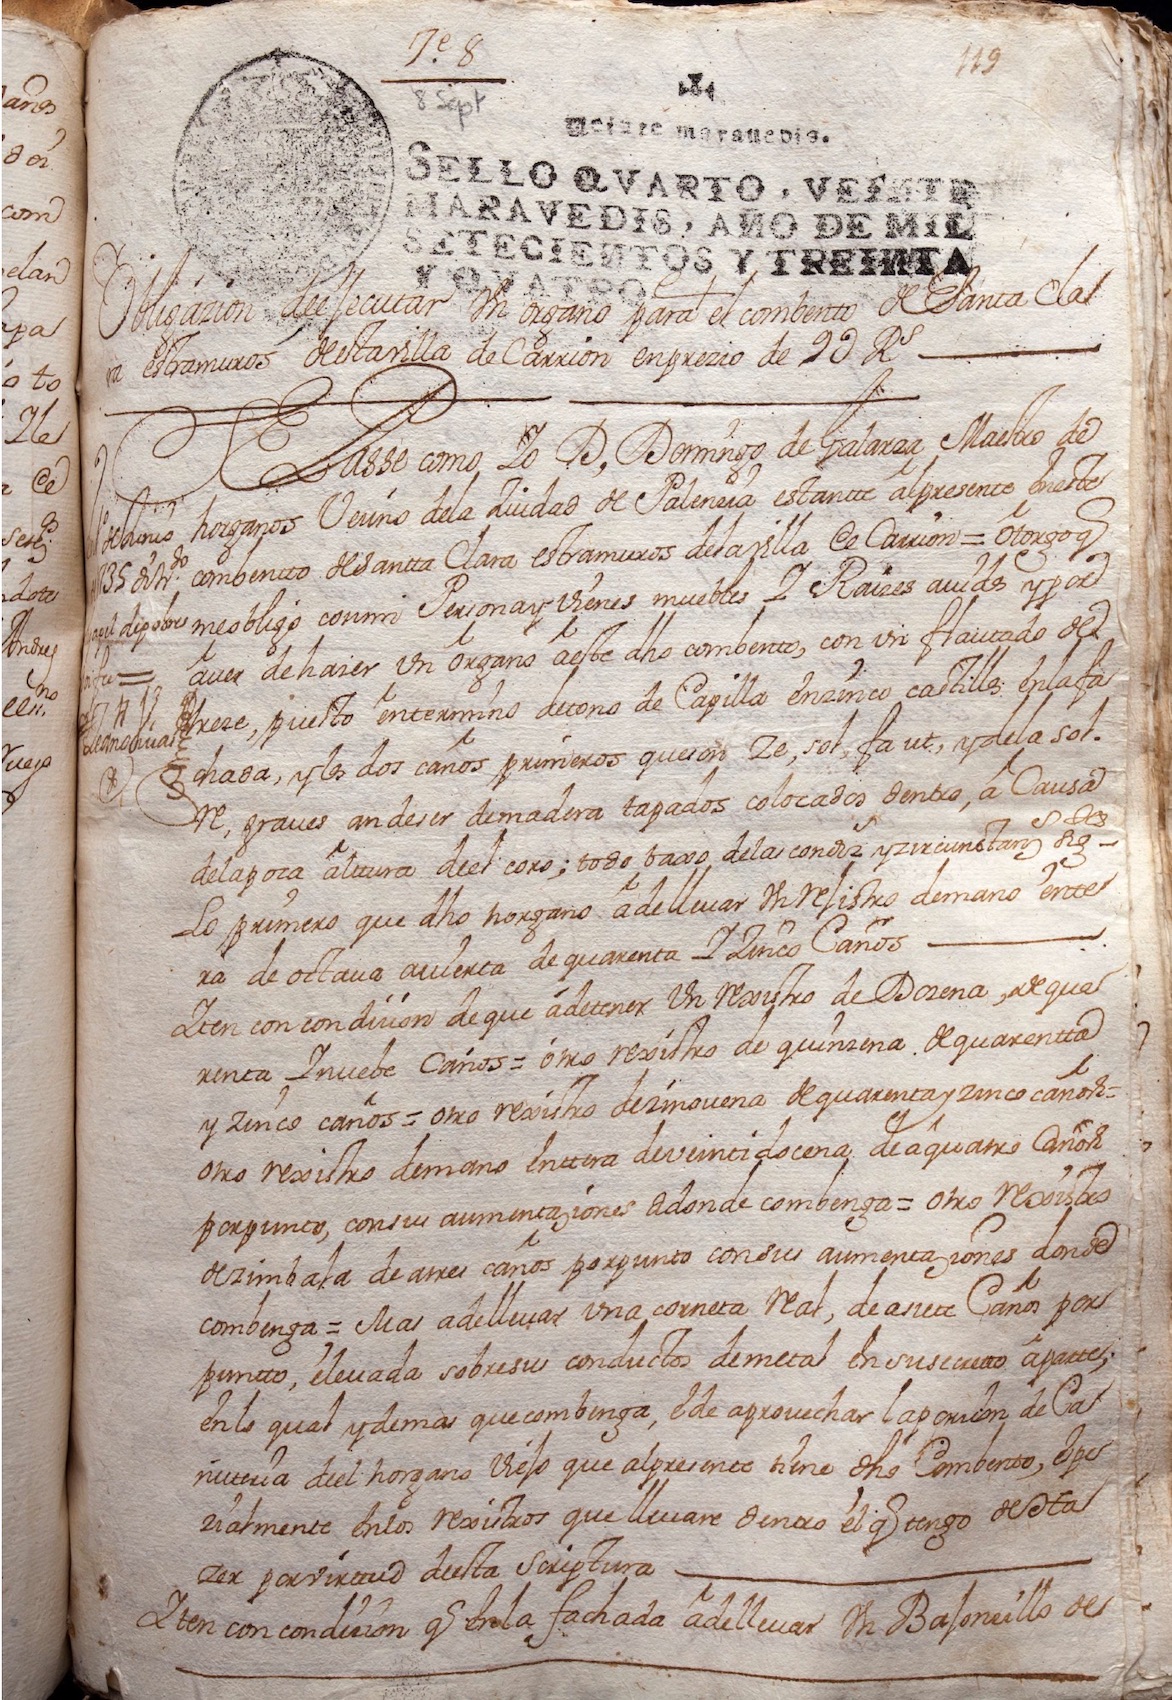 7.e 8
119
8 Sept
Veinte maravedis.
SELLO QVARTO, VEINTE
MARAVEDIS, AÑO DE MIL
SETECIENTOS Y TREINTA
Y QVATRO
Obligazion deejecutar Vn organo para el combento de Santa Cla
ra estramuros destavilla de Carrion enprezio de 2 D Rs
Sasse como Yo D, Domingo de Galarza Maestro de
horganos Vecino dela Ciudad de Palencia estantte alpresente eneste
combentto desantta Clara estramuros delavilla de Carrion = otorgo q
meobligo conmi Persona y vienes muebles Y Raizes auidos y por
auer de hazer Vn organo aeste dho combento, con vn flautado de
treze, puesto entermino detono de Capilla enzinco castillos enlafa
chada, y los dos caños primeros queson Ze, sol, fa ut, y dela sol.
re, graues ande ser demadera tapados colocados dentro, a Causa
delapoca altura deel coro; todo baxo delas condiz y zircunstanz sig
Lo primero que dho horgano adelleuar Vn rejistro demano ente
ra de octaua auierta de quarenta Y Zinco Caños
Yten con condizion de que adetener Vn rexistro de Dozena, de qua
renta Y nuebe Caños = otro rexistro de quinzena de quarentta
y zinco caños = otro rexistro dezinouena de quarenta y zinco caños =
otro rexistro demano enttera deveintidocena de aquatro Caños
porpunto, consus aumentaziones adonde combenga = otro rexistro
dezimbala de atres caños porpunto consus aumentaziones donde
combenga = Mas adelleuar vna corneta real, de asiete Caños por
puntto, eleuada sobresus conductos demetal en susecreto aparte;
enlo qual y demas quecombenga, e de aprouechar laporzion de Ca
ñuteria deel horgano Viejo que alpresente tiene dho Combento, espe
zialmente enlos rexistros que lleuare dentro el q tengo de
zer porvirtud deesta Scriptura
Yten con condizion q enla fachada adelleuar Vn Bajoncillo de